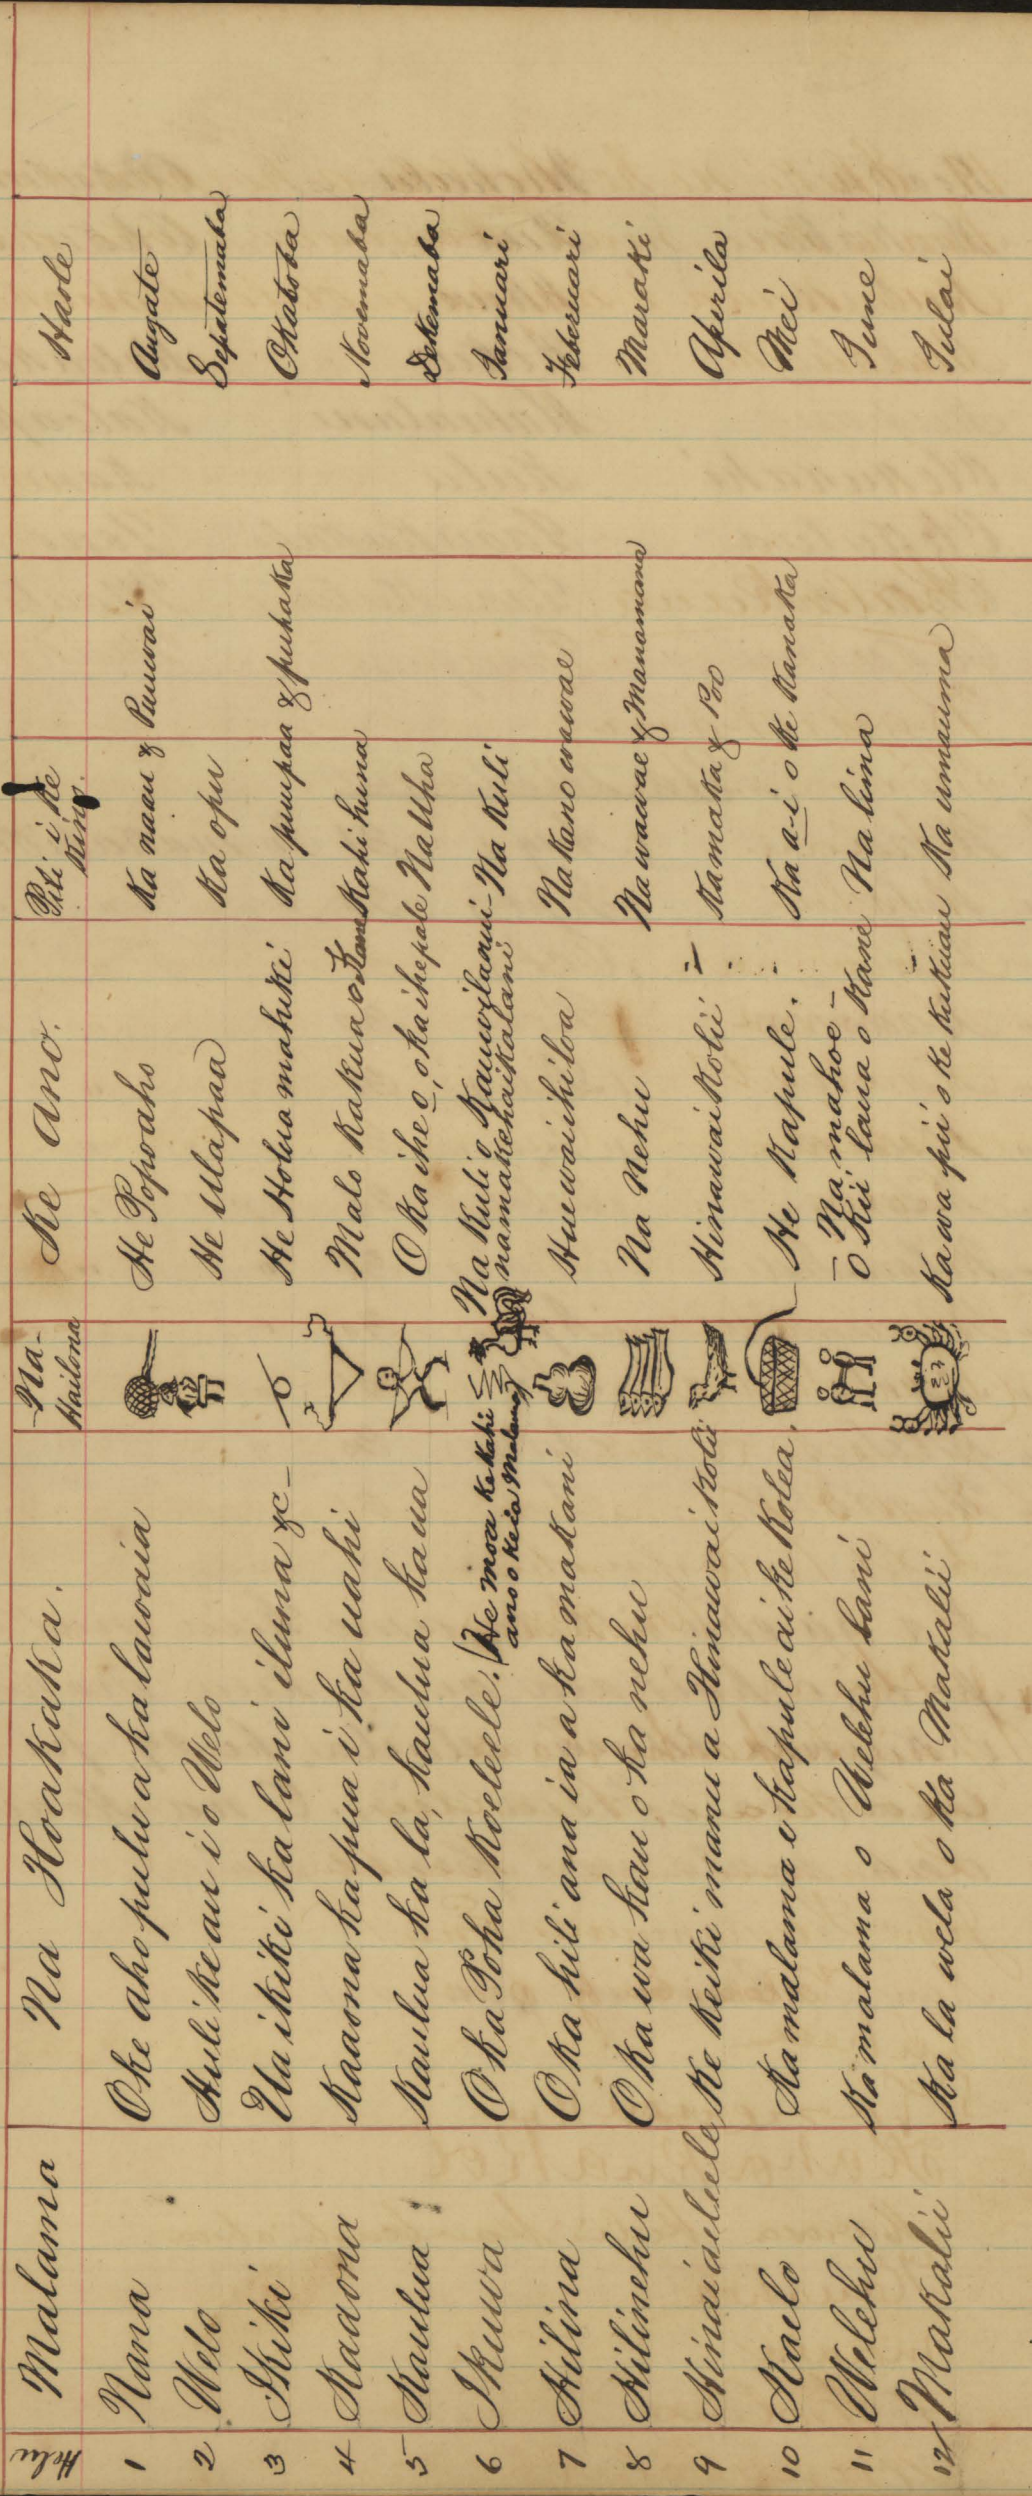 Helu Malama Na Hoakaka. Na Hailona Ke Ano. Pili i ke Kino. Haole
1 Nana Oke aho pulu a ka lawaia He Popoaho Ka naau & Puuwai Augate
2 Welo Huli ke au i o Welo He Ulapaa Ka opu Sepatemaba
3 Ikiki Ua ikiki ka lani iluna &c– He Holua mahiki Ka puupaa & puhaka Okatoba
4 Kaaona Kaaona ka pua i ka uahi Malo Kakua o Kane Kahi huna Novemaba
5 Kaulua Kaulua ka la, kaulua ka ua O Ka ihe o, o ka ihe pale Na Uha Dekemaba
6 Ikuwa O Ka Poha Koeleele. (He moa kekahi ano o keia Malama) Na Kuli o Kauwilanui namakehaikalani Na Kuli Ianuari
7 Hilina O Ka hili ana ia a ka makani Huewaihiloa Na Kano wawae Feberuari
8 Hilinehu O Ka wa kau o ka nehu Na Nehu Na wawae & Manamana Maraki
9 Hinaiaeleele Ke Keiki manu a Hinawaikolii Hinawaikolii – Kamaka & Poo Aperila
10 Kaelo Ka malama e kapule ai ke Kolea. He Kapule. Ka a-i o ke Kanaka Mei
11 Welehu Ka malama o Welehu lani – Na mahoe –
O Kii laua o Kane Na lima Iune
12 Makalii Ka la wela o ka Makalii Ka wa pii o ke kukuau Ka umauma Iulai